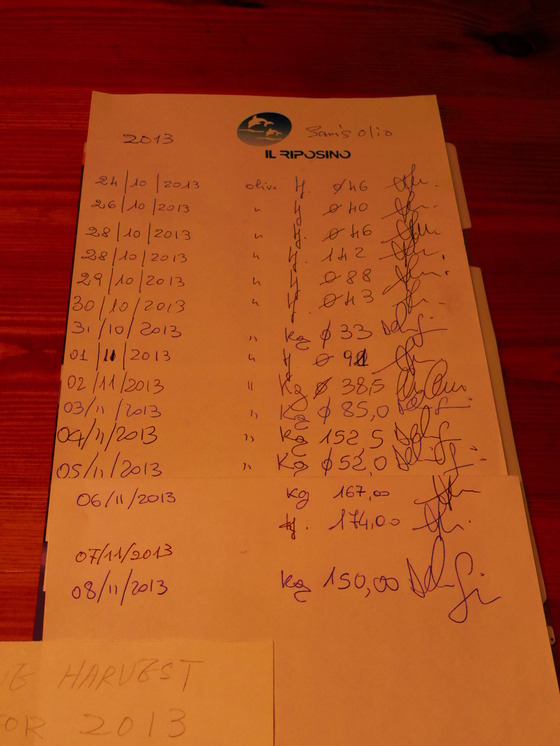 2013 Sanis olio
IL RIPOSINO
24/10/2013 olive kg. ø46
26/10/2013 " kg ø40
28/10/2013 " kg. ø46
28/10/2013 " kg. 142
29/10/2013 " kg. ø88
30/10/2013 " kg. ø43
31/10/2013 " Kg ø33
01/11/2013 " kg ø91
02/11/2013 " Kg ø38,5
03/11/2013 " Kg ø85,0
04/11/2013 " Kg 152,5
05/11/2013 " Kg ø52,0
06/11/2013 Kg 167,00
kg. 174,00
07/11/2013
08/11/2013 Kg 150,00
HARVEST
FOR 2013